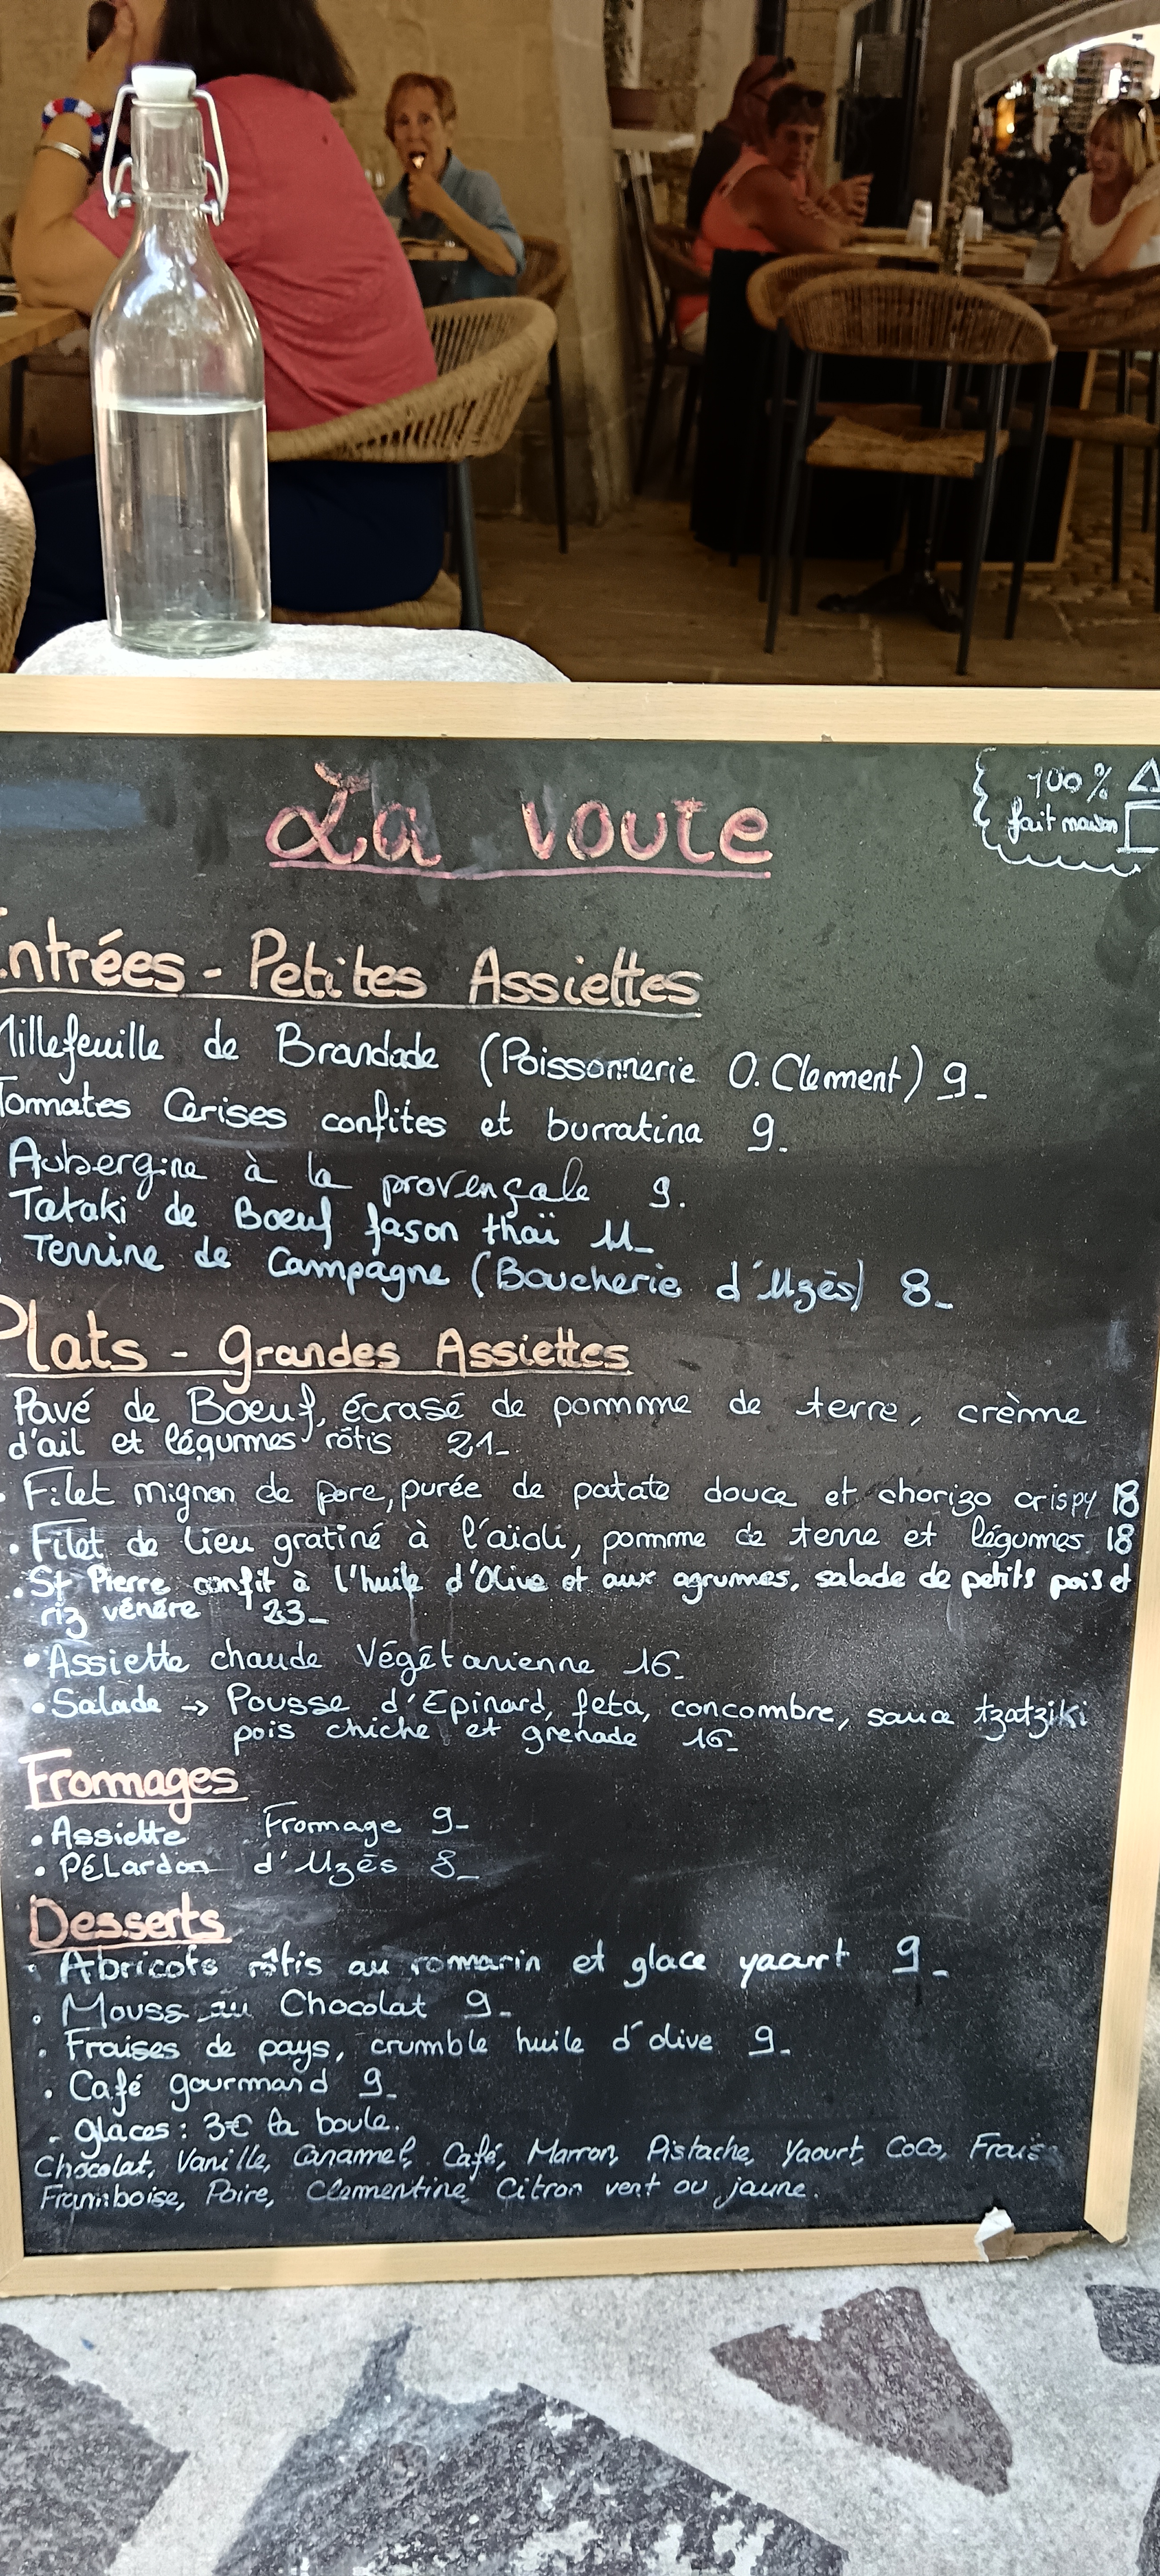 La voute
100%
fait maison
Entrées - Petites Assiettes
Millefeuille de Brandade (Poissonnerie O. Clement) 9_
Tomates Cerises confites et burratina 9_
Aubergine à la provençale 9.
Tataki de Boeuf fason thaï 11_
Terrine de Campagne (Boucherie d'Uzès) 8_
Plats - grandes Assiettes
Pavé de Boeuf, écrasé de pomme de terre, crème
d'ail et légumes rôtis 21_
• Filet mignon de porc, purée de patate douce et chorizo crispy 18
• Filet de lieu gratiné à l'aïoli, pomme de terre et légumes 18
• St Pierre confit à l'huile d'Olive et aux agrumes, salade de petits pois et
riz vénéré 23_
• Assiette chaude Végétarienne 16_
• Salade → Pousse d'Epinard, feta, concombre, sauce tzatziki
pois chiche et grenade 16_
Fromages
• Assiette Fromage 9_
• Pélardon d'Uzès 8_
Desserts
• Abricots rôtis au romarin et glace yaourt 9_
• Mousse au Chocolat 9_
• Fraises de pays, crumble huile d'olive 9_
• Café gourmand 9_
- glaces : 3€ la boule.
Chocolat, Vanille, Caramel, Café, Marron, Pistache, Yaourt, Coco, Fraise
Framboise, Poire, Clementine, Citron vert ou jaune.